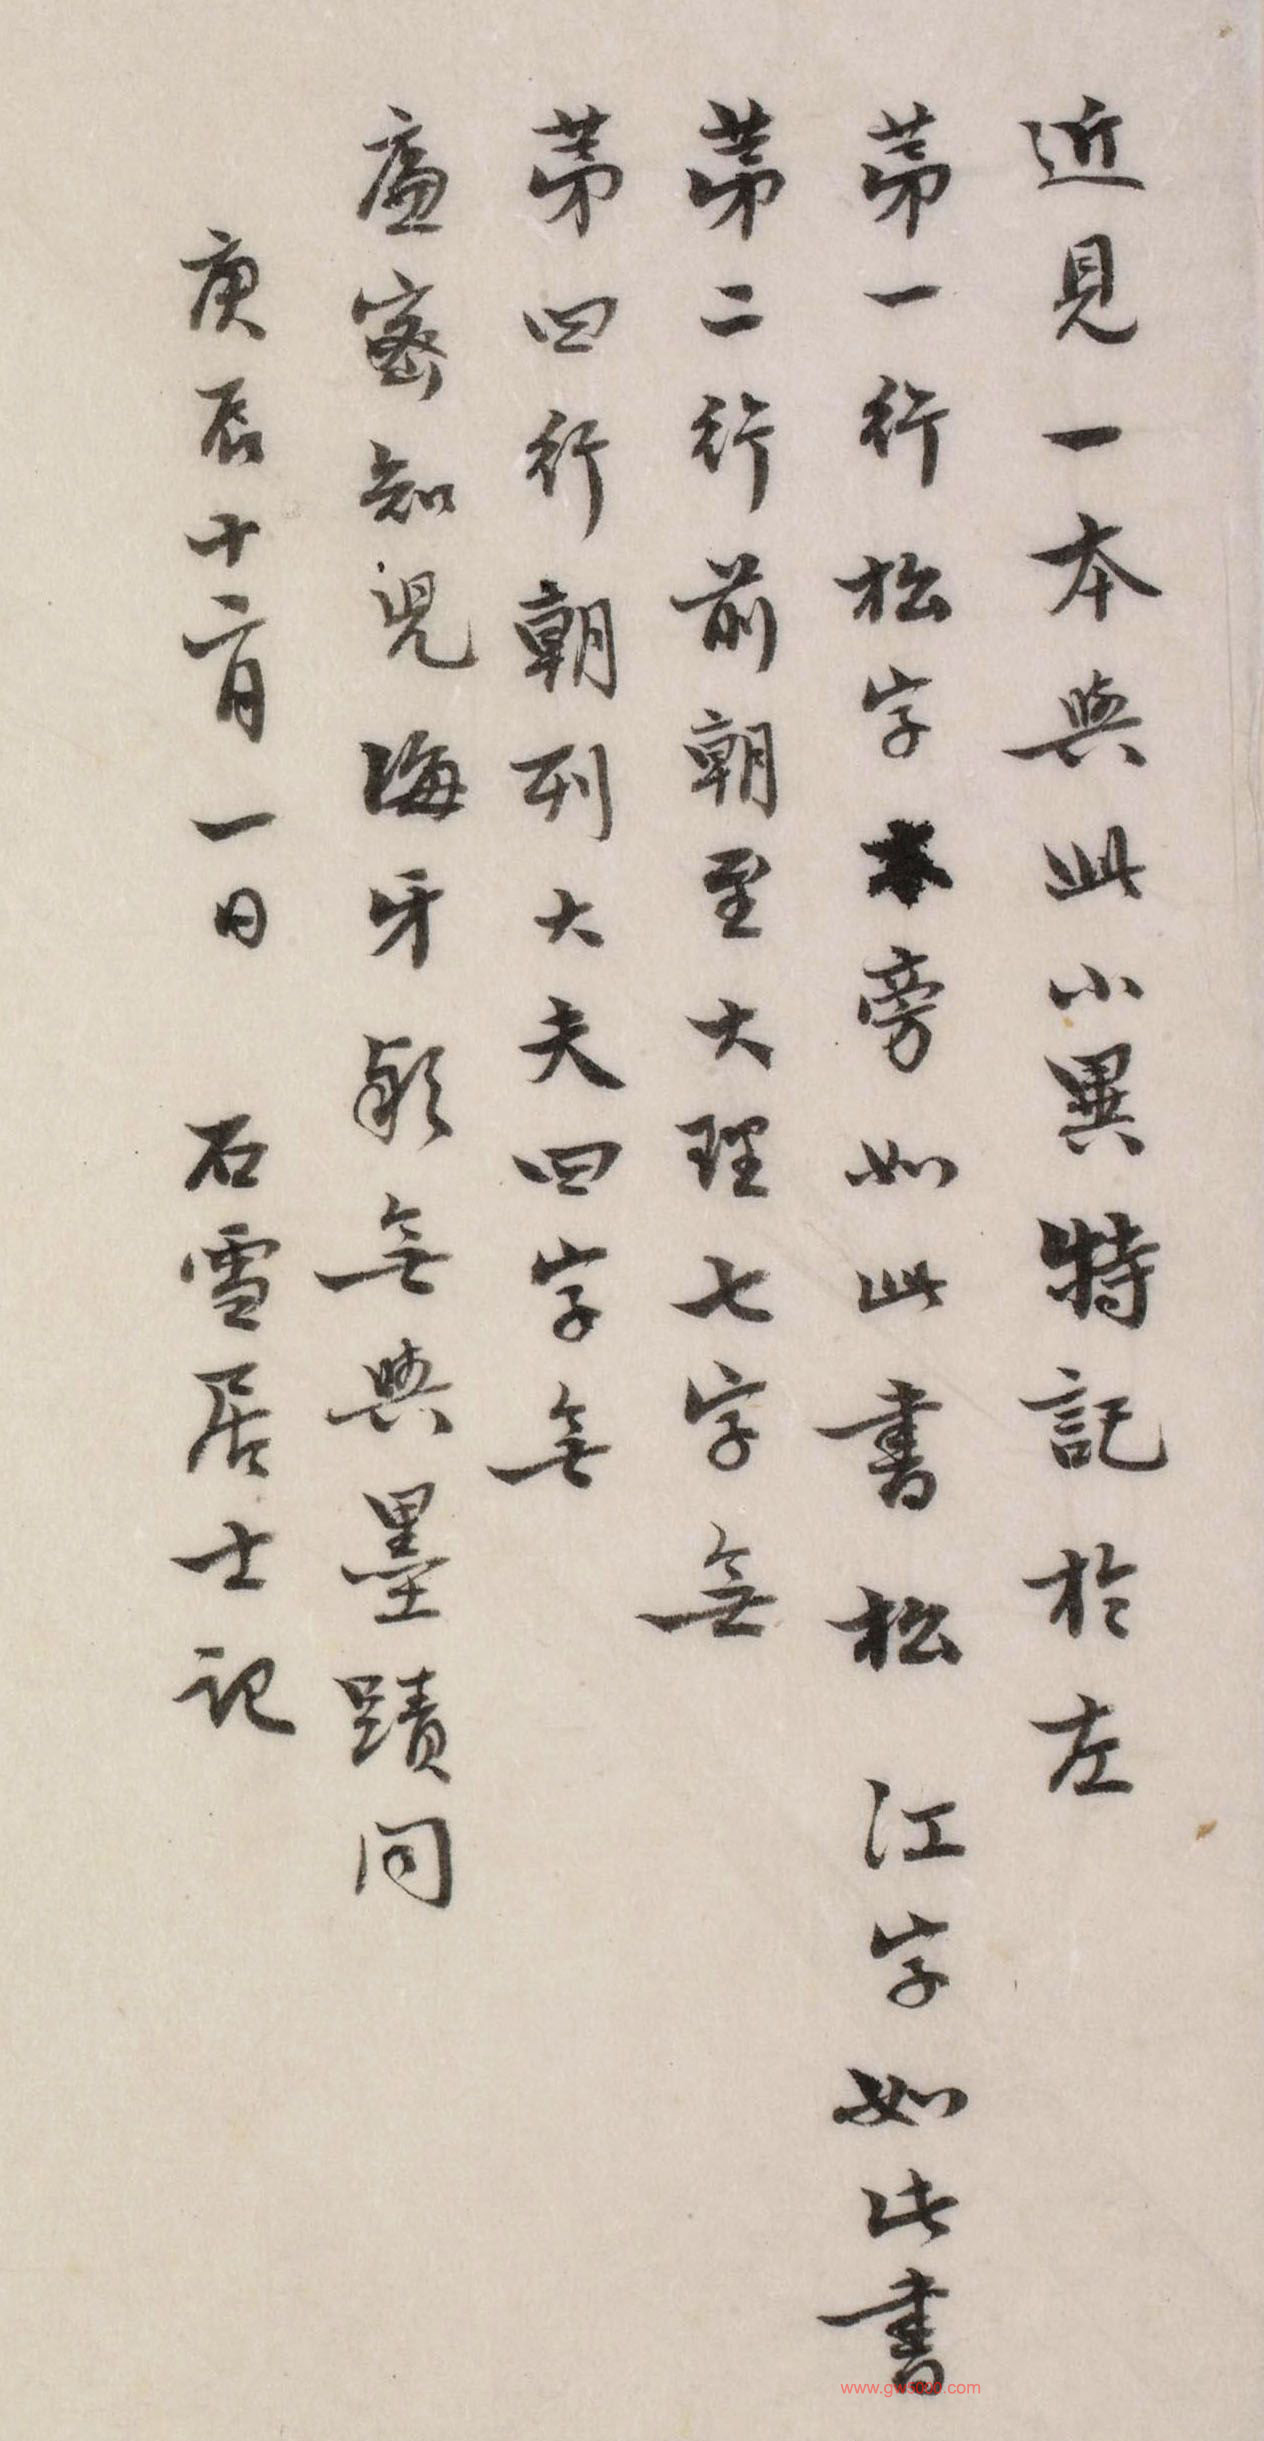 近見一本與此小異特記於左
第一行松字旁如此書松江字如此書
第二行前朝至大理七字無
第四行朝列大夫四字無
廉密知兒海牙款無與墨蹟同
庚辰十二月一日 石雪居士記